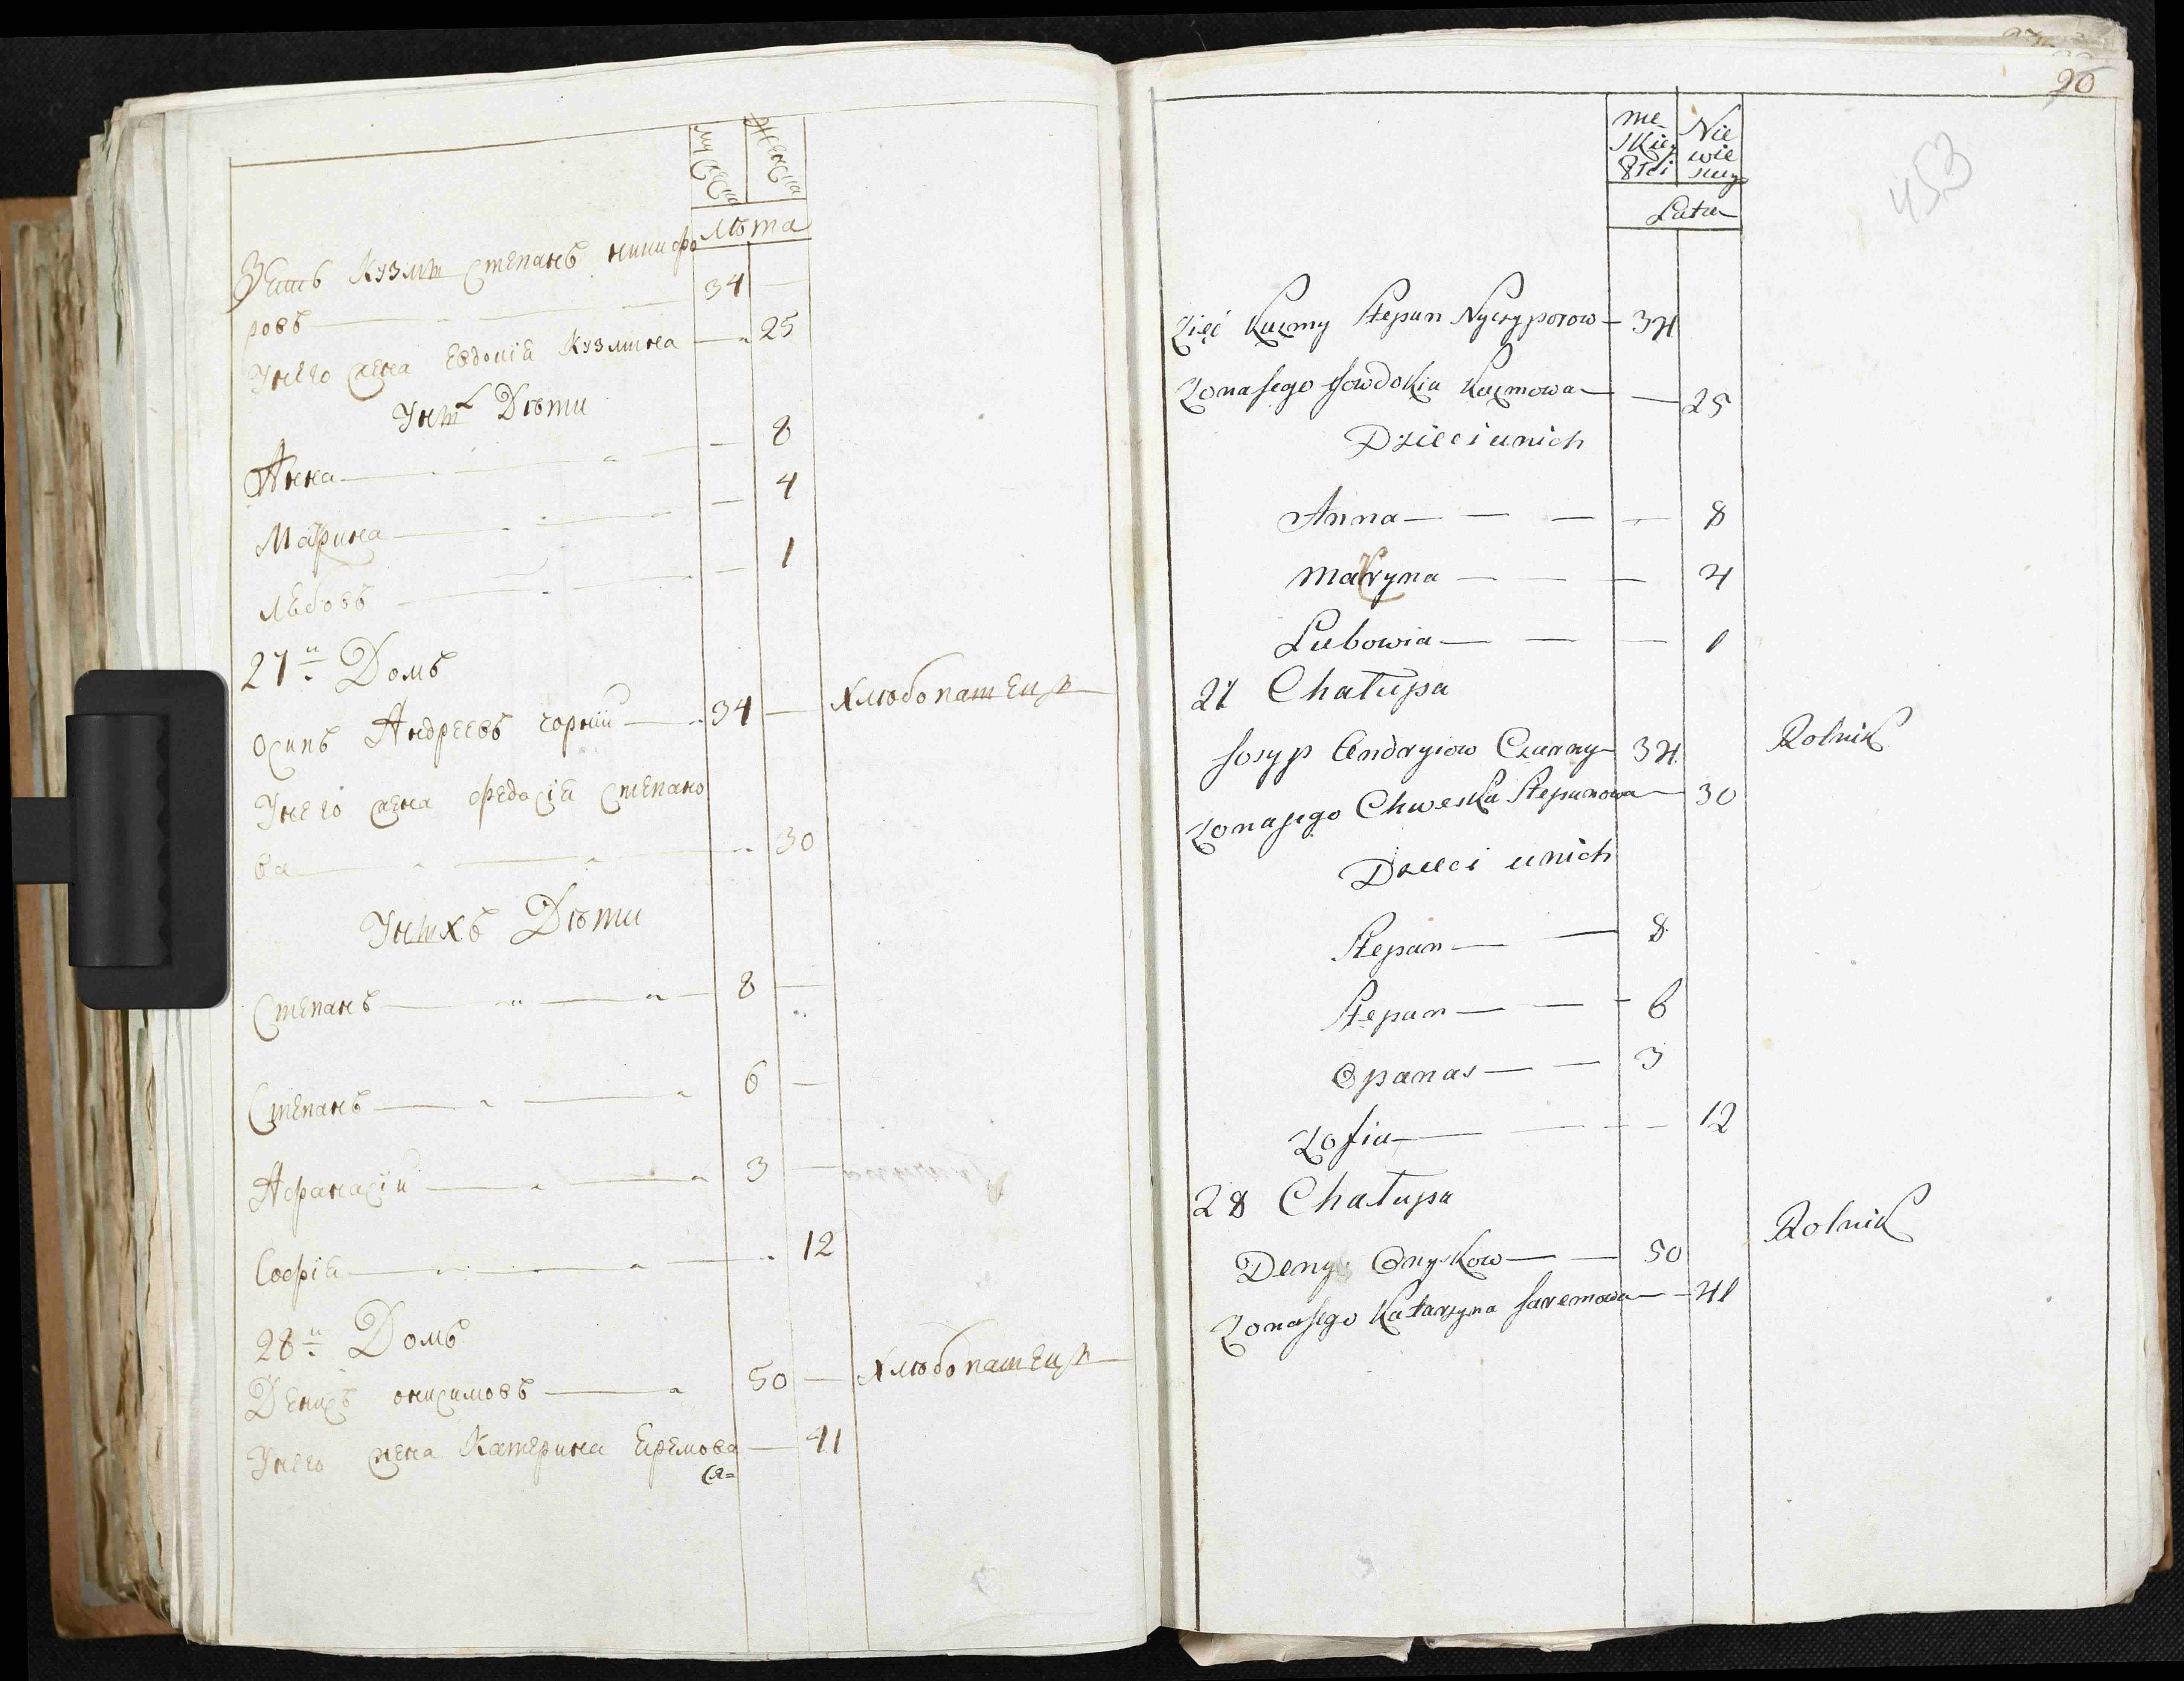 мужеска
женска
лѣта
Зять Кузми Степанъ никифо
ровъ 34
У него жена Евдокія Кузмина 25
У них Дѣти
Анна 8
Марина 4
Любовъ 1
27й Домъ
осипъ Андреевъ чорнїй 34 Хлюбопашецъ
У него жена федосїя Степано
ва 30
У нихъ Дѣти
Степанъ 8
Степанъ 6
Афанасїй 3
Софїя 12
28й Домъ
Денисъ онисимовъ 50 Хлюбопашецъ
У него жена Катерина Ефремова 41
20
453
mę
skiey
Płci
Nie
wie
sciey
Lata
Zięć Kuzmy Stepan Nyczyporow 34
Zona jego Jowdokia Kuzmowa 25
Dzieci u nich
Anna 8
Maryna 4
Lubowia 1
27 Chałupa
Josyp Andryiow Czarny 34 Rolnik
Zona jego Chweska Stepanowa 30
Dzieci u nich
Stepan 8
Stepan 6
Opanas 3
Zofia 12
28 Chałupa
Denys Onyskow 50 Rolnik
Zona jego Katarzyna Jaremowa 41